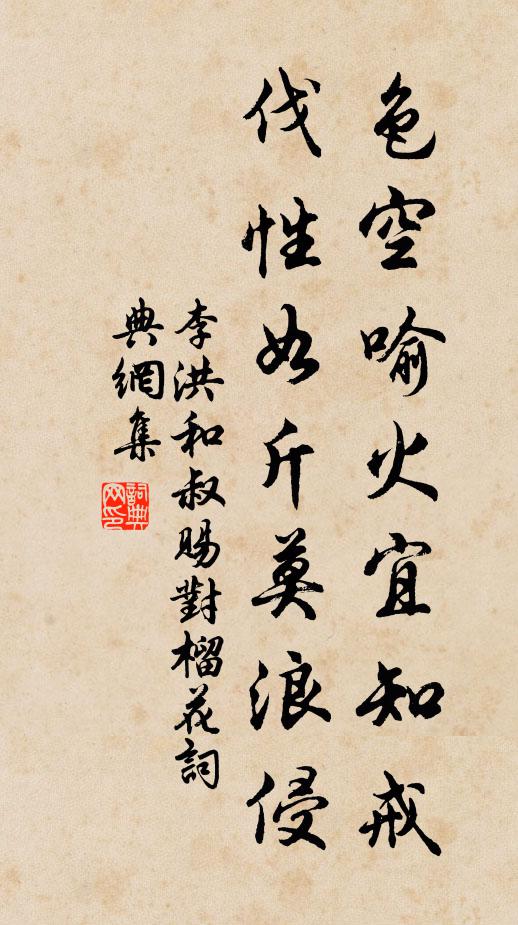 色空喻火宜知戒
伐性如斤莫浪侵
李洪和叔賜對榴花詞
典網集
詞典
网印